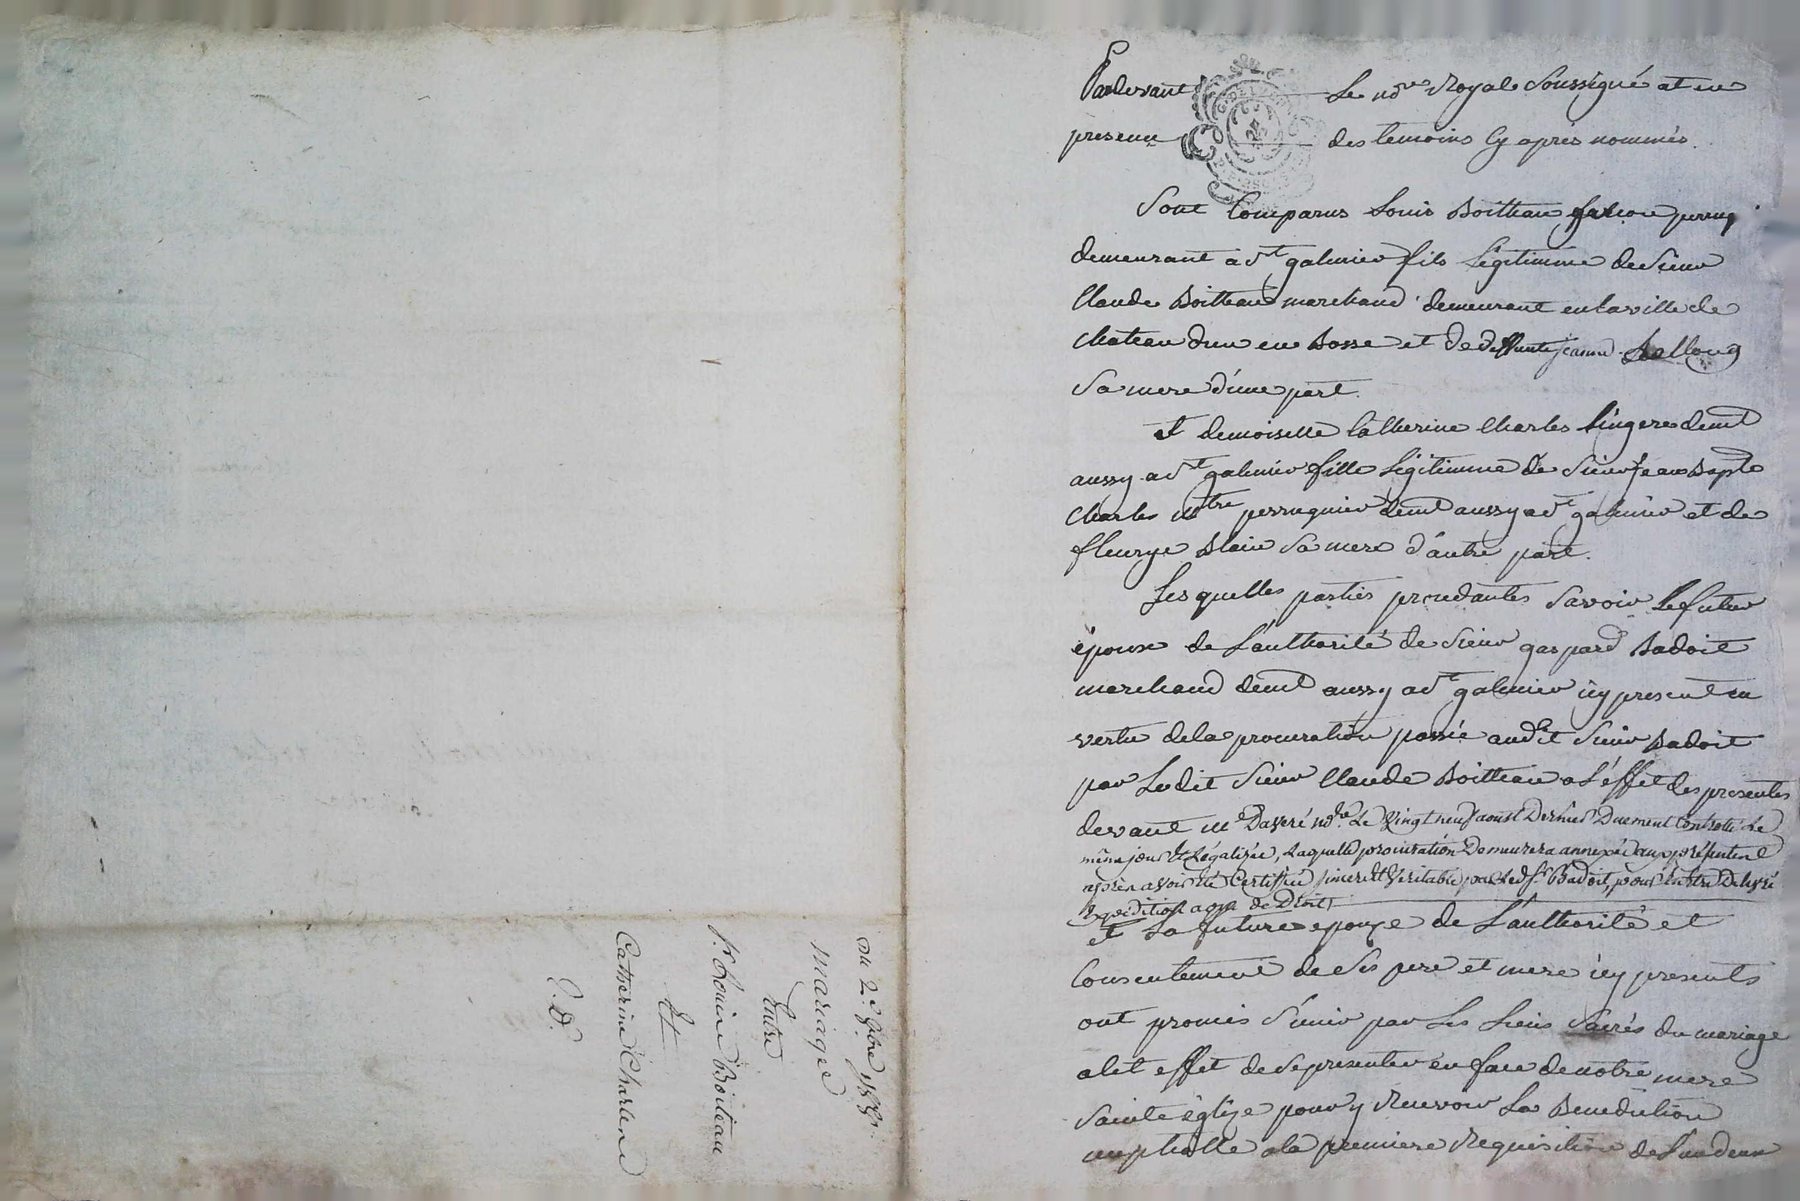 Pardevant Le nore Royale Soussigné et en
presence des temoins Cy après nommés.
Sont Comparus Louis Boitteau garcon perruq
demeurant a St galmier fils Légitimme de Sieur
Claude Boitteau marchand demeurant en la ville de
Chateau dun en Bosse et de deffunte jeanne
Sa mere d'une part.
et demoiselle Catherine Charles Lingere demt
aussy a St galmier fille Légitimme de Sieur jean Bapte
Charles mtre perruquier demt aussy a St galmier et de
fleurye Blain Sa mere d'autre part.
Lesquelles parties procedantes Savoir Le futur
époux de L'authorité de Sieur gaspard Badoit
marchand demt aussy a St galmier icy present en
vertu de la procuration passée audit Sieur Badoit
par Ledit Sieur Claude Boitteau a L'éffet des presentes
devant me nore Le Vingt neuf aoust Dernier Duement Controllé Le
même jour Et Légalisée, Laquelle procuration Demeurera annexée aux présentes
après avoir été Certiffiée sincere Et Veritable par Led Sr Badoit, pour En être Delivré
Expedition a qui de Droit
et La future epouze de L'authorité et
Consentement de Ses pere et mere icy presents
ont promis S'unir par Les Liens Sacrés du mariage
a Cet effet de Se presenter en face de notre mere
Sainte église pour y Recevoir La Benediction
nuptialle a la premiere Requisition de L'un deux
Du 2e 7bre
Mariage
Entre
Sr Louis Boiteau
Et
Catherine Charles